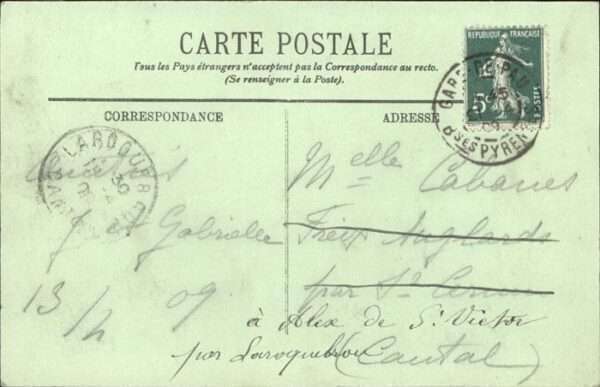 CARTE POSTALE
Tous les Pays étrangers n'acceptent pas la Correspondance au recto.
(Se renseigner à la Poste).
CORRESPONDANCE
ADRESSE
REPUBLIQUE FRANÇAISE
5c
POSTES
GARE DE PAU
Bses PYRENEES
LAROQUEBROU
Amitiés
J et Gabrielle
13/2 09
Melle Cabanes
Freix Anglards
par St Cernin
à Alex de St Victor
par Laroquebrou
(Cantal)